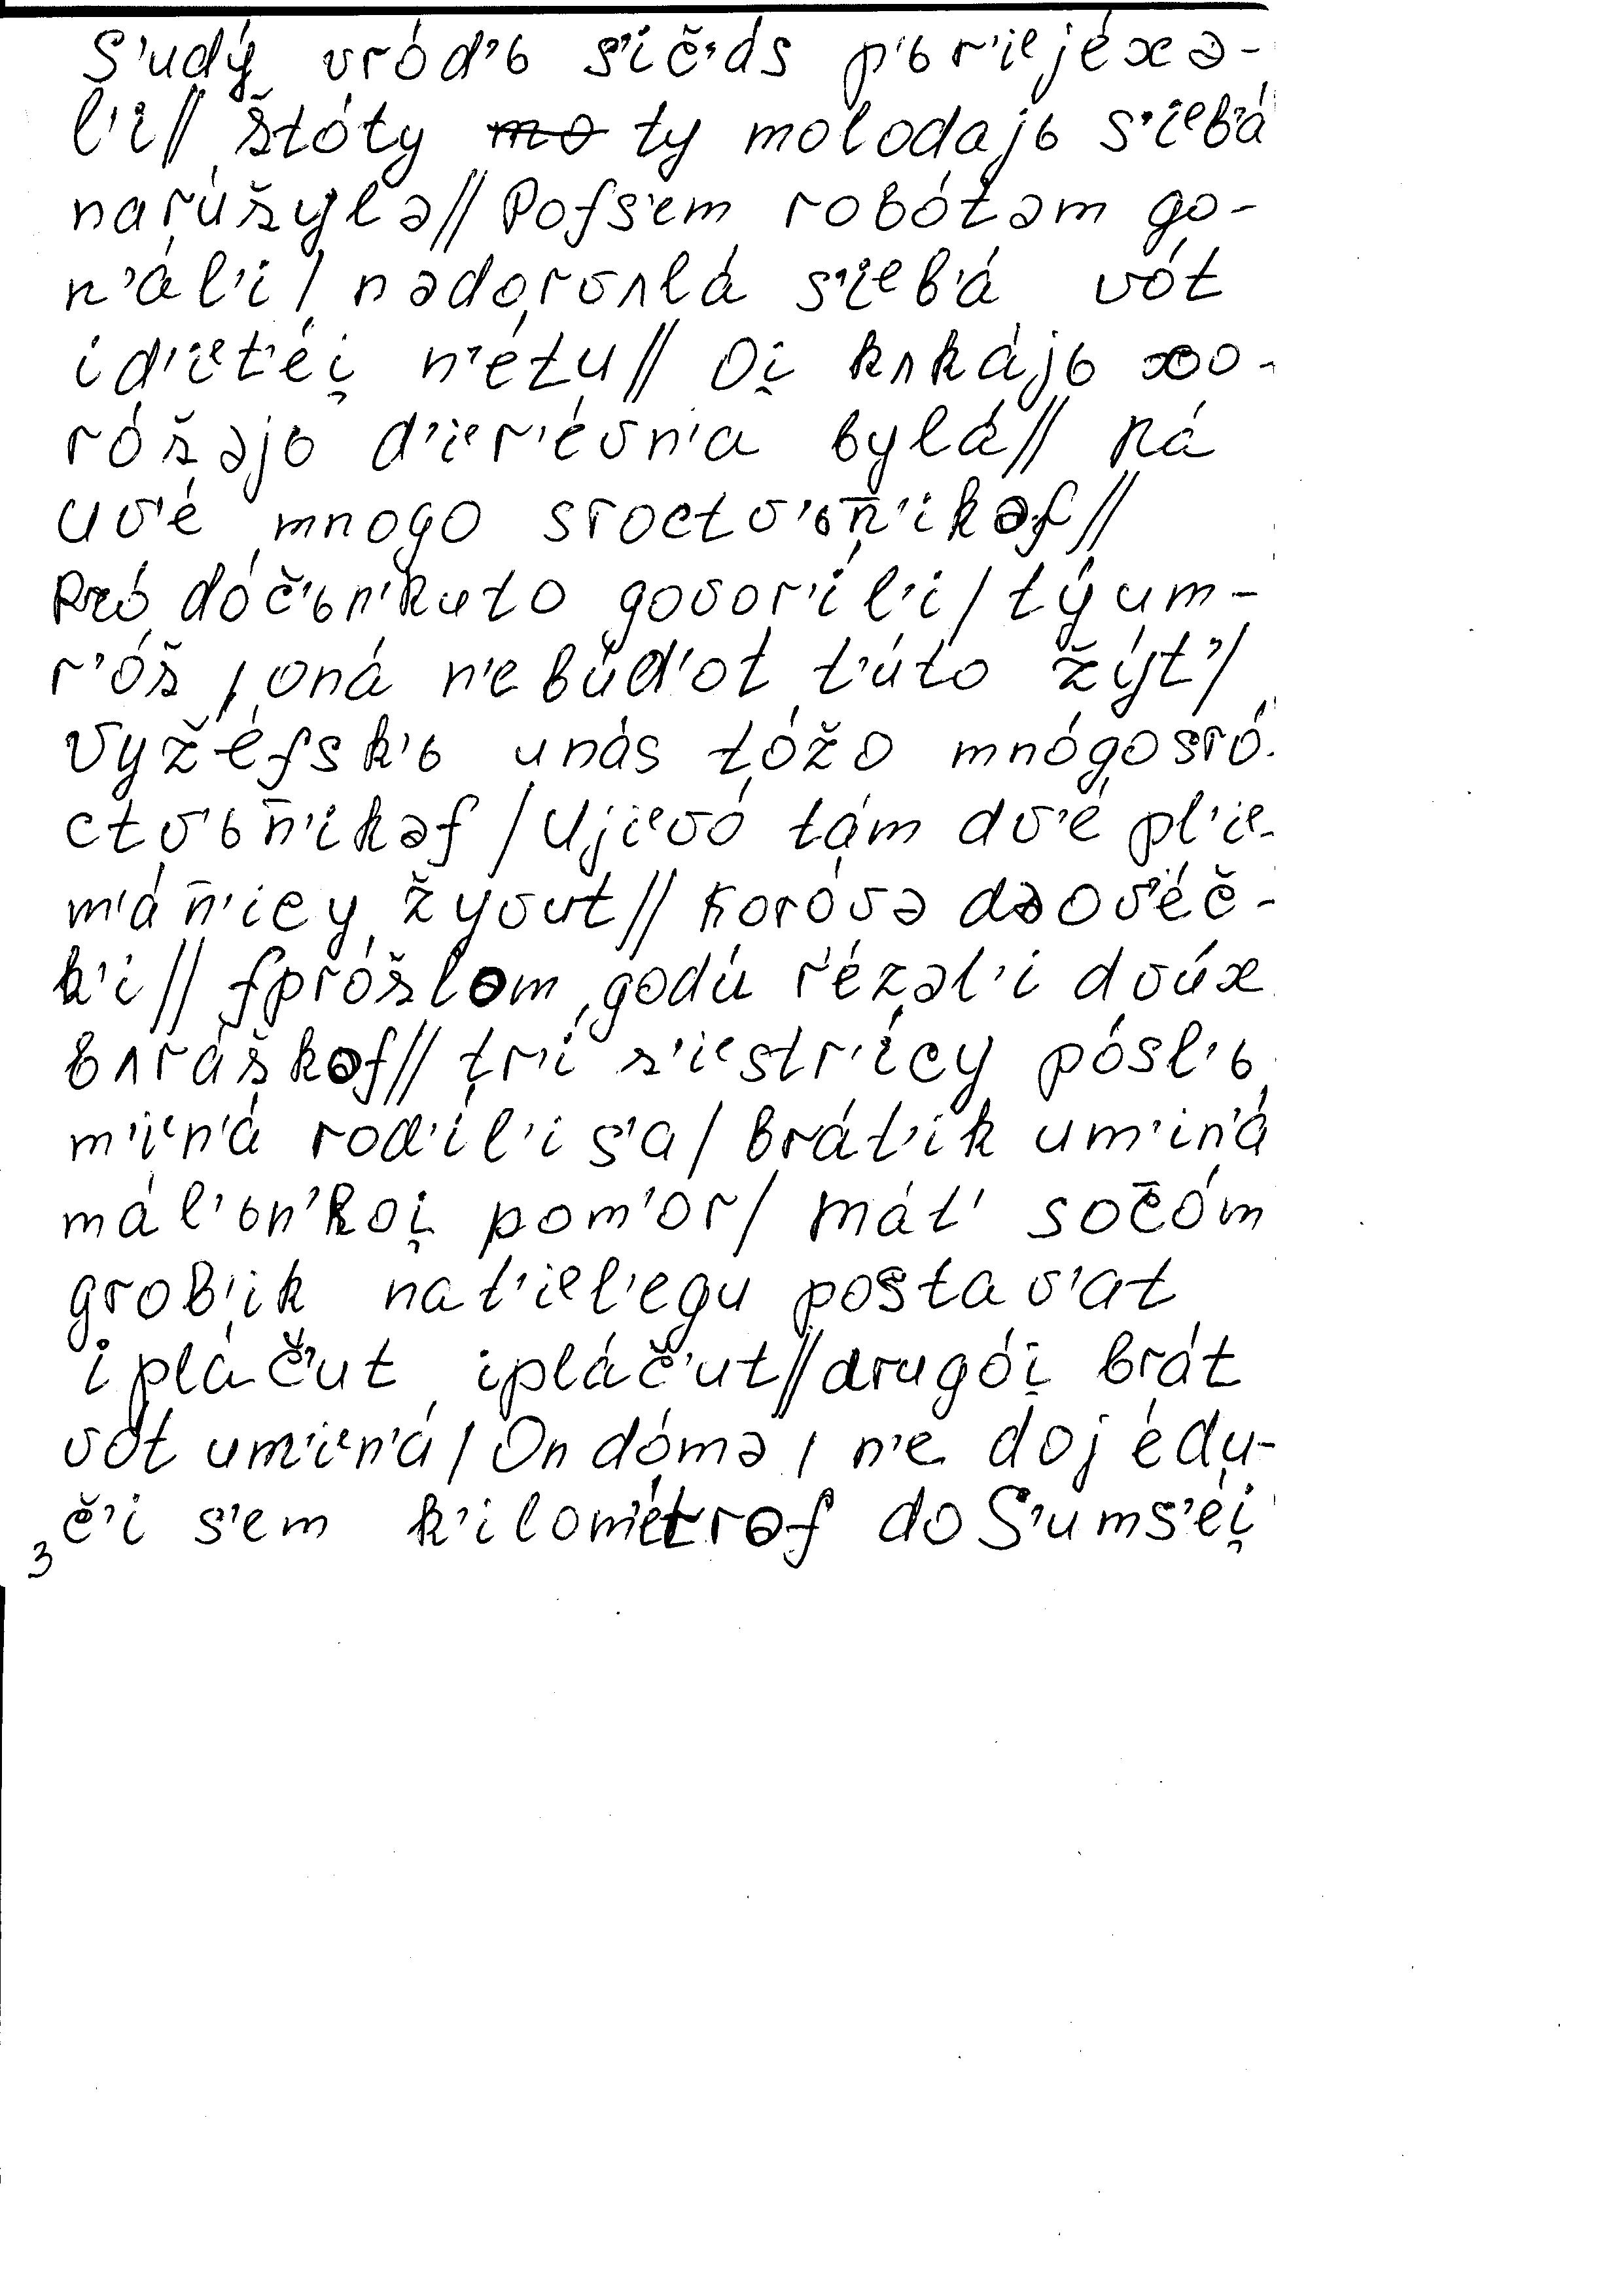 S'udý vród'ь s'ič'ás p'ьr'iᵉjéxə-
l'i// štóty ty molodajь s'iᵉb'á
narúšylə// Pofs'em robótəm go-
n'ál'i/ nədorvʌlá s'iᵉb'á vót
id'iᵉt'éi̯ n'étu// Oi̯ kʌkájь xo-
róšəjь d'iᵉr'évn'a bylá// ná
uv'é mnogo sroctv'ьn̄'ikəf//
Pró dóč'ьn'kuto govor'íl'i/ týum-
r'óš, oná n'ebúd'ot t'úto žýt'/
Vyžéfsk'ь unás tóžo mnógosró-
ctv'ьn̄'ikəf/ Ujiᵉvó tám dv'é pl'iᵉ-
m'án̄'icy žyvut// Koróvə dəov'éč-
k'i// fpróšlom godú r'ézəl'i dvúx
bʌráškəf// tr'í s'iᵉstr'ícy pósl'ь
m'iᵉn'á rod'íl'is'a/ brát'ik um'in'á
mál'ьn'koi̯ pom'or/ mát' soc̄óm
grob'ik nat'iᵉl'egu postav'at
ipláč'ut ipláč'ut// drugói̯ brát
vót um'iᵉn'á/ On dómə, n'e dojédu-
č'i s'em k'ilom'étrəf do S'ums'éi̯
3